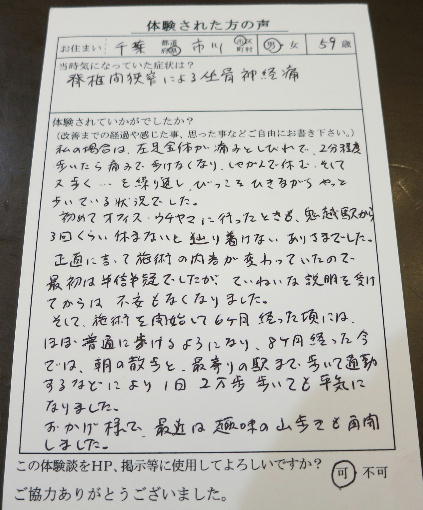 体験された方の声
お住まい 千葉 都道府県 市川 市区町村 男・女 59歳
当時気になっていた症状は?
脊椎間狭窄による坐骨神経痛
体験されていかがでしたか?
(改善までの経過や感じた事、思った事などご自由にお書き下さい。)
私の場合は、左足全体が痛みとしびれで、2分程度
歩いたら痛みで歩けなくなり、しゃがんで休む、そして
又歩く…を繰り返し、びっこをひきながらやっと
歩いている状況でした。
初めてオフィス・ウチヤマに行ったときも、鬼越駅から
3回くらい休まないと辿り着けないありさまでした。
正直に言って施術の内容が変わっていたので
最初は半信半疑でしたが、ていねいな説明を受け
てからは不安もなくなりました。
そして、施術を開始して6ヶ月経った頃には、
ほぼ普通に歩けるようになり、8ヶ月経った今
では、朝の散歩と、最寄りの駅まで歩いて通勤
するなどにより1日2万歩歩いても平気に
なりました。
おかげ様で、最近は趣味の山歩きも再開
しました。
この体験談をHP、掲示等に使用してよろしいですか? 可・不可
ご協力ありがとうございました。